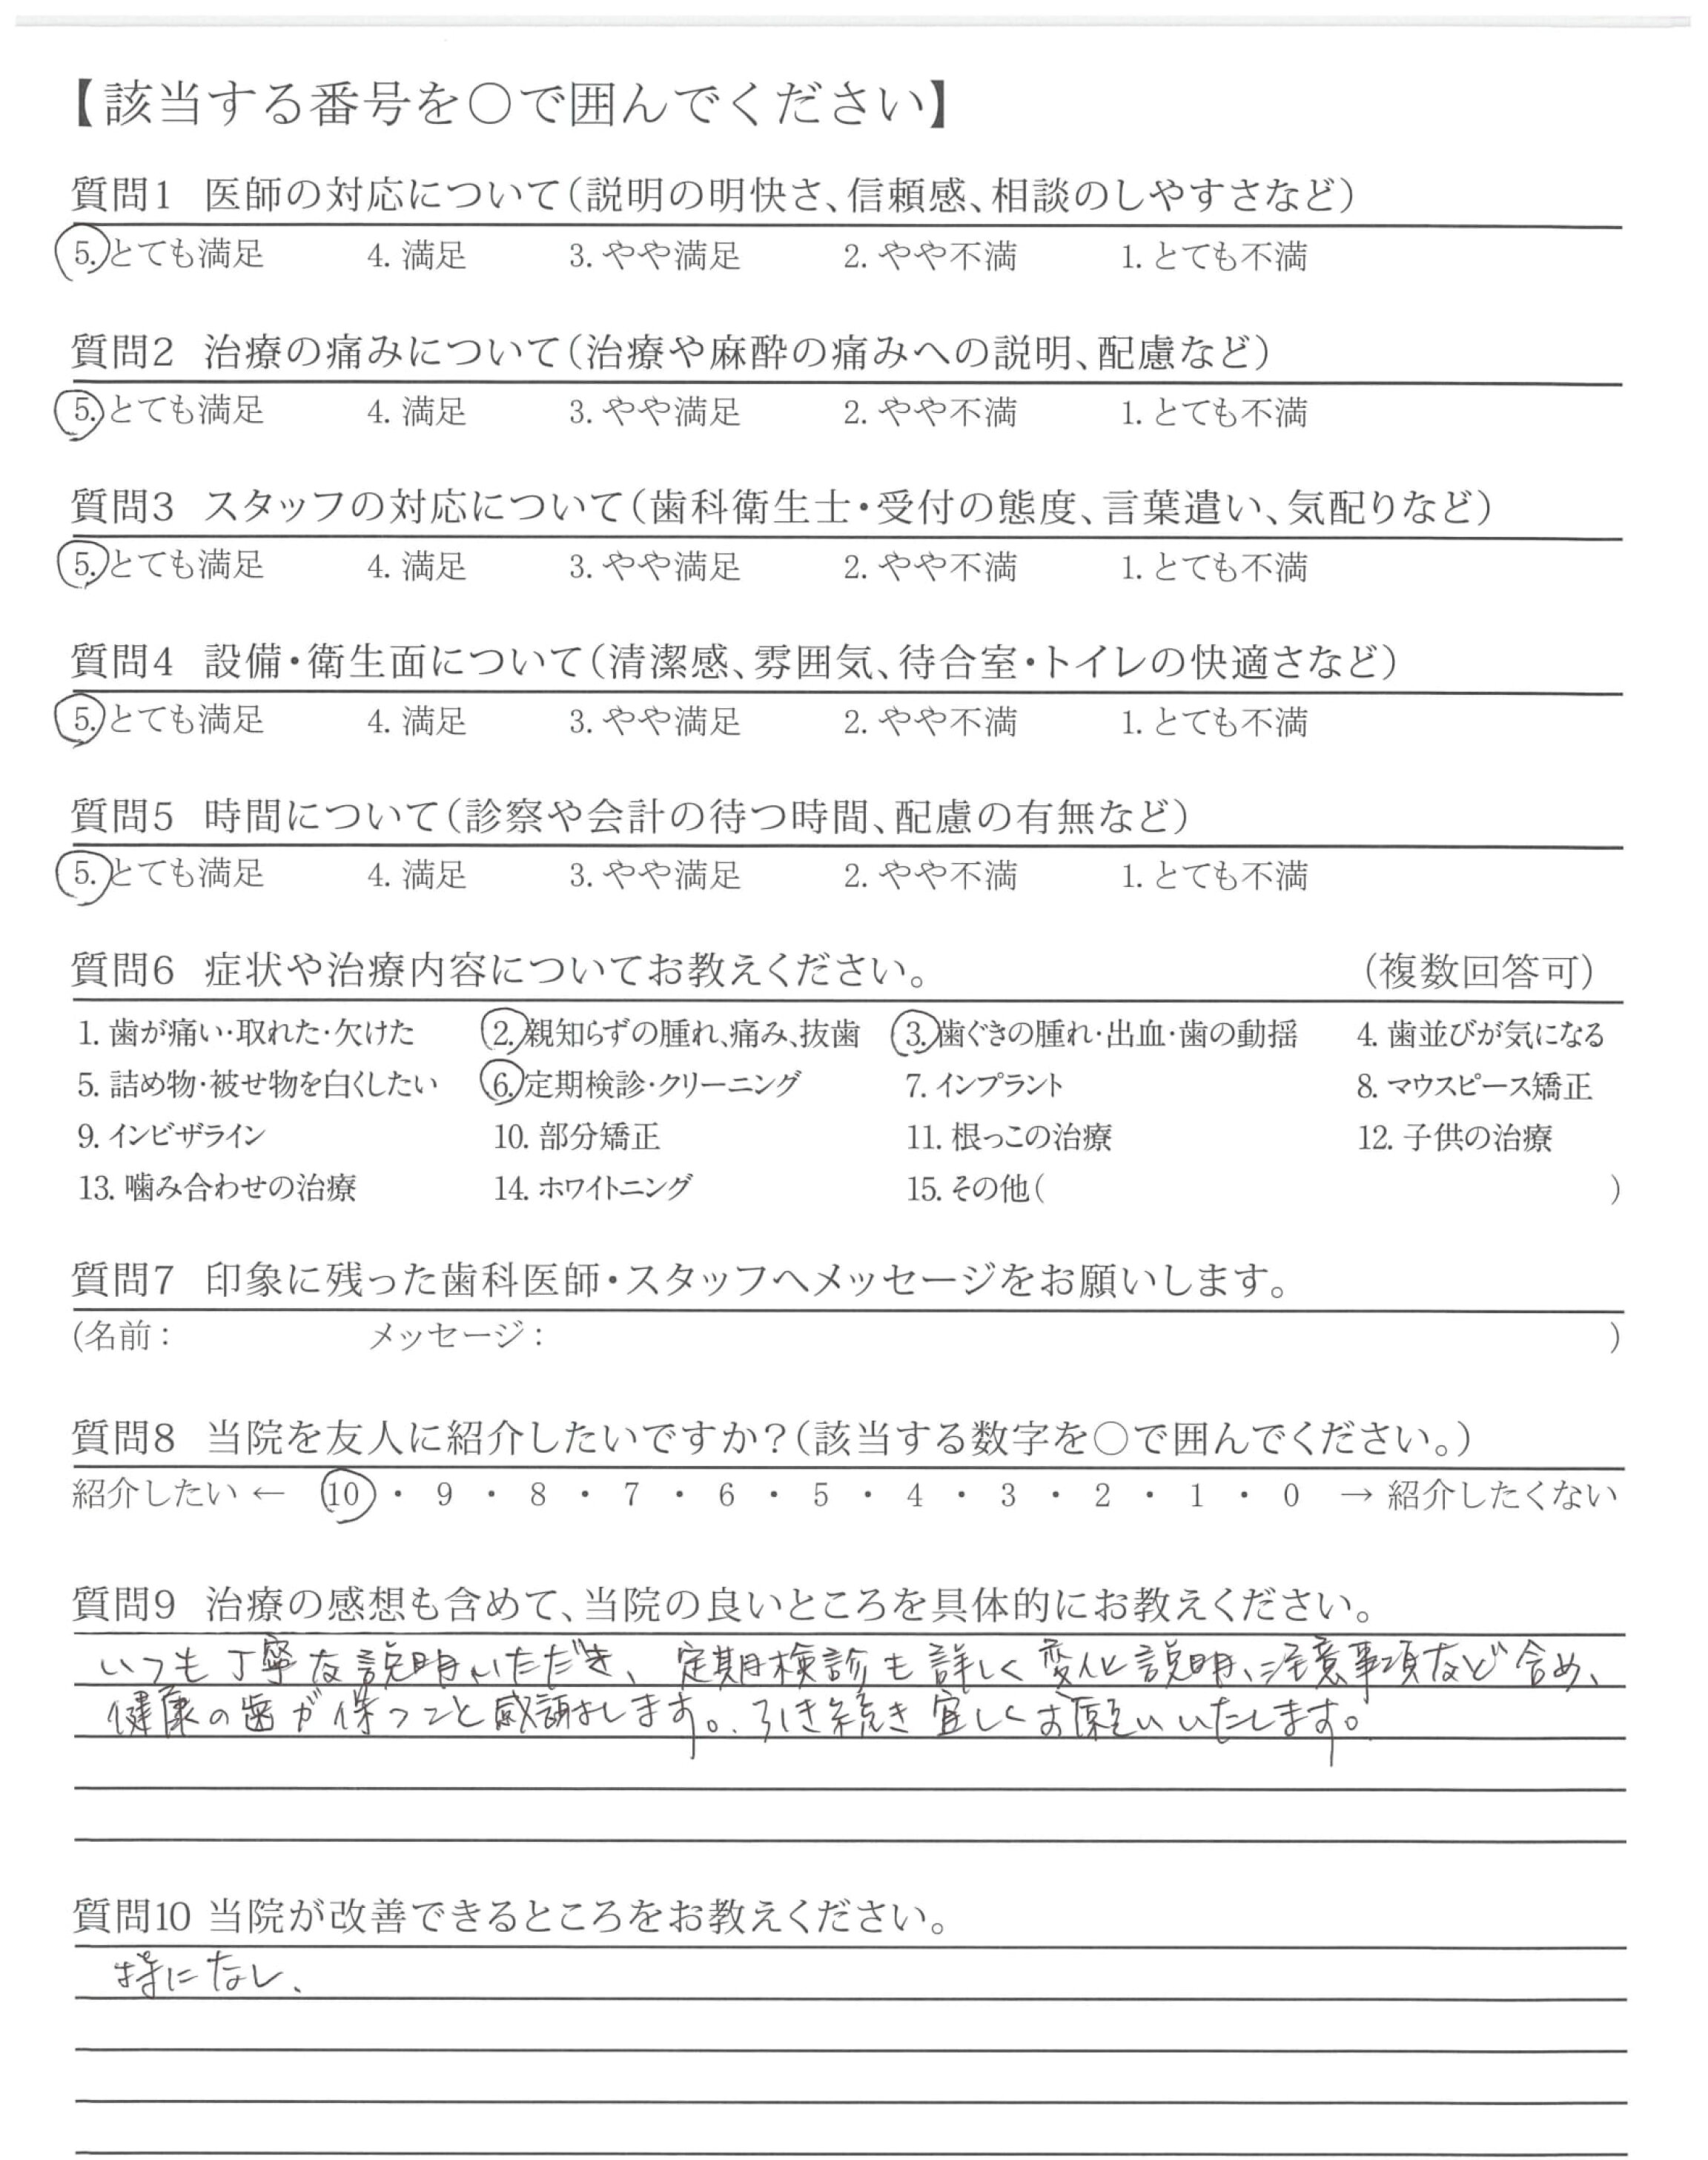 【該当する番号を〇で囲んでください】
質問1 医師の対応について(説明の明快さ、信頼感、相談のしやすさなど)
5. とても満足 4. 満足 3. やや満足 2. やや不満 1. とても不満
質問2 治療の痛みについて(治療や麻酔の痛みへの説明、配慮など)
5. とても満足 4. 満足 3. やや満足 2. やや不満 1. とても不満
質問3 スタッフの対応について(歯科衛生士・受付の態度、言葉遣い、気配りなど)
5. とても満足 4. 満足 3. やや満足 2. やや不満 1. とても不満
質問4 設備・衛生面について(清潔感、雰囲気、待合室・トイレの快適さなど)
5. とても満足 4. 満足 3. やや満足 2. やや不満 1. とても不満
質問5 時間について(診察や会計の待つ時間、配慮の有無など)
5. とても満足 4. 満足 3. やや満足 2. やや不満 1. とても不満
質問6 症状や治療内容についてお教えください。 (複数回答可)
1. 歯が痛い・取れた・欠けた 2. 親知らずの腫れ、痛み、抜歯 3. 歯ぐきの腫れ・出血・歯の動揺 4. 歯並びが気になる
5. 詰め物・被せ物を白くしたい 6. 定期検診・クリーニング 7. インプラント 8. マウスピース矯正
9. インビザライン 10. 部分矯正 11. 根っこの治療 12. 子供の治療
13. 噛み合わせの治療 14. ホワイトニング 15. その他( )
質問7 印象に残った歯科医師・スタッフへメッセージをお願いします。
(名前: メッセージ: )
質問8 当院を友人に紹介したいですか?(該当する数字を〇で囲んでください。)
紹介したい ← 10 ・ 9 ・ 8 ・ 7 ・ 6 ・ 5 ・ 4 ・ 3 ・ 2 ・ 1 ・ 0 → 紹介したくない
質問9 治療の感想も含めて、当院の良いところを具体的にお教えください。
いつも丁寧な説明いただき、定期検診も詳しく変化説明、注意事項など含め、
健康の歯が保つこと感謝します。引き続き宜しくお願いいたします。
質問10 当院が改善できるところをお教えください。
特になし、